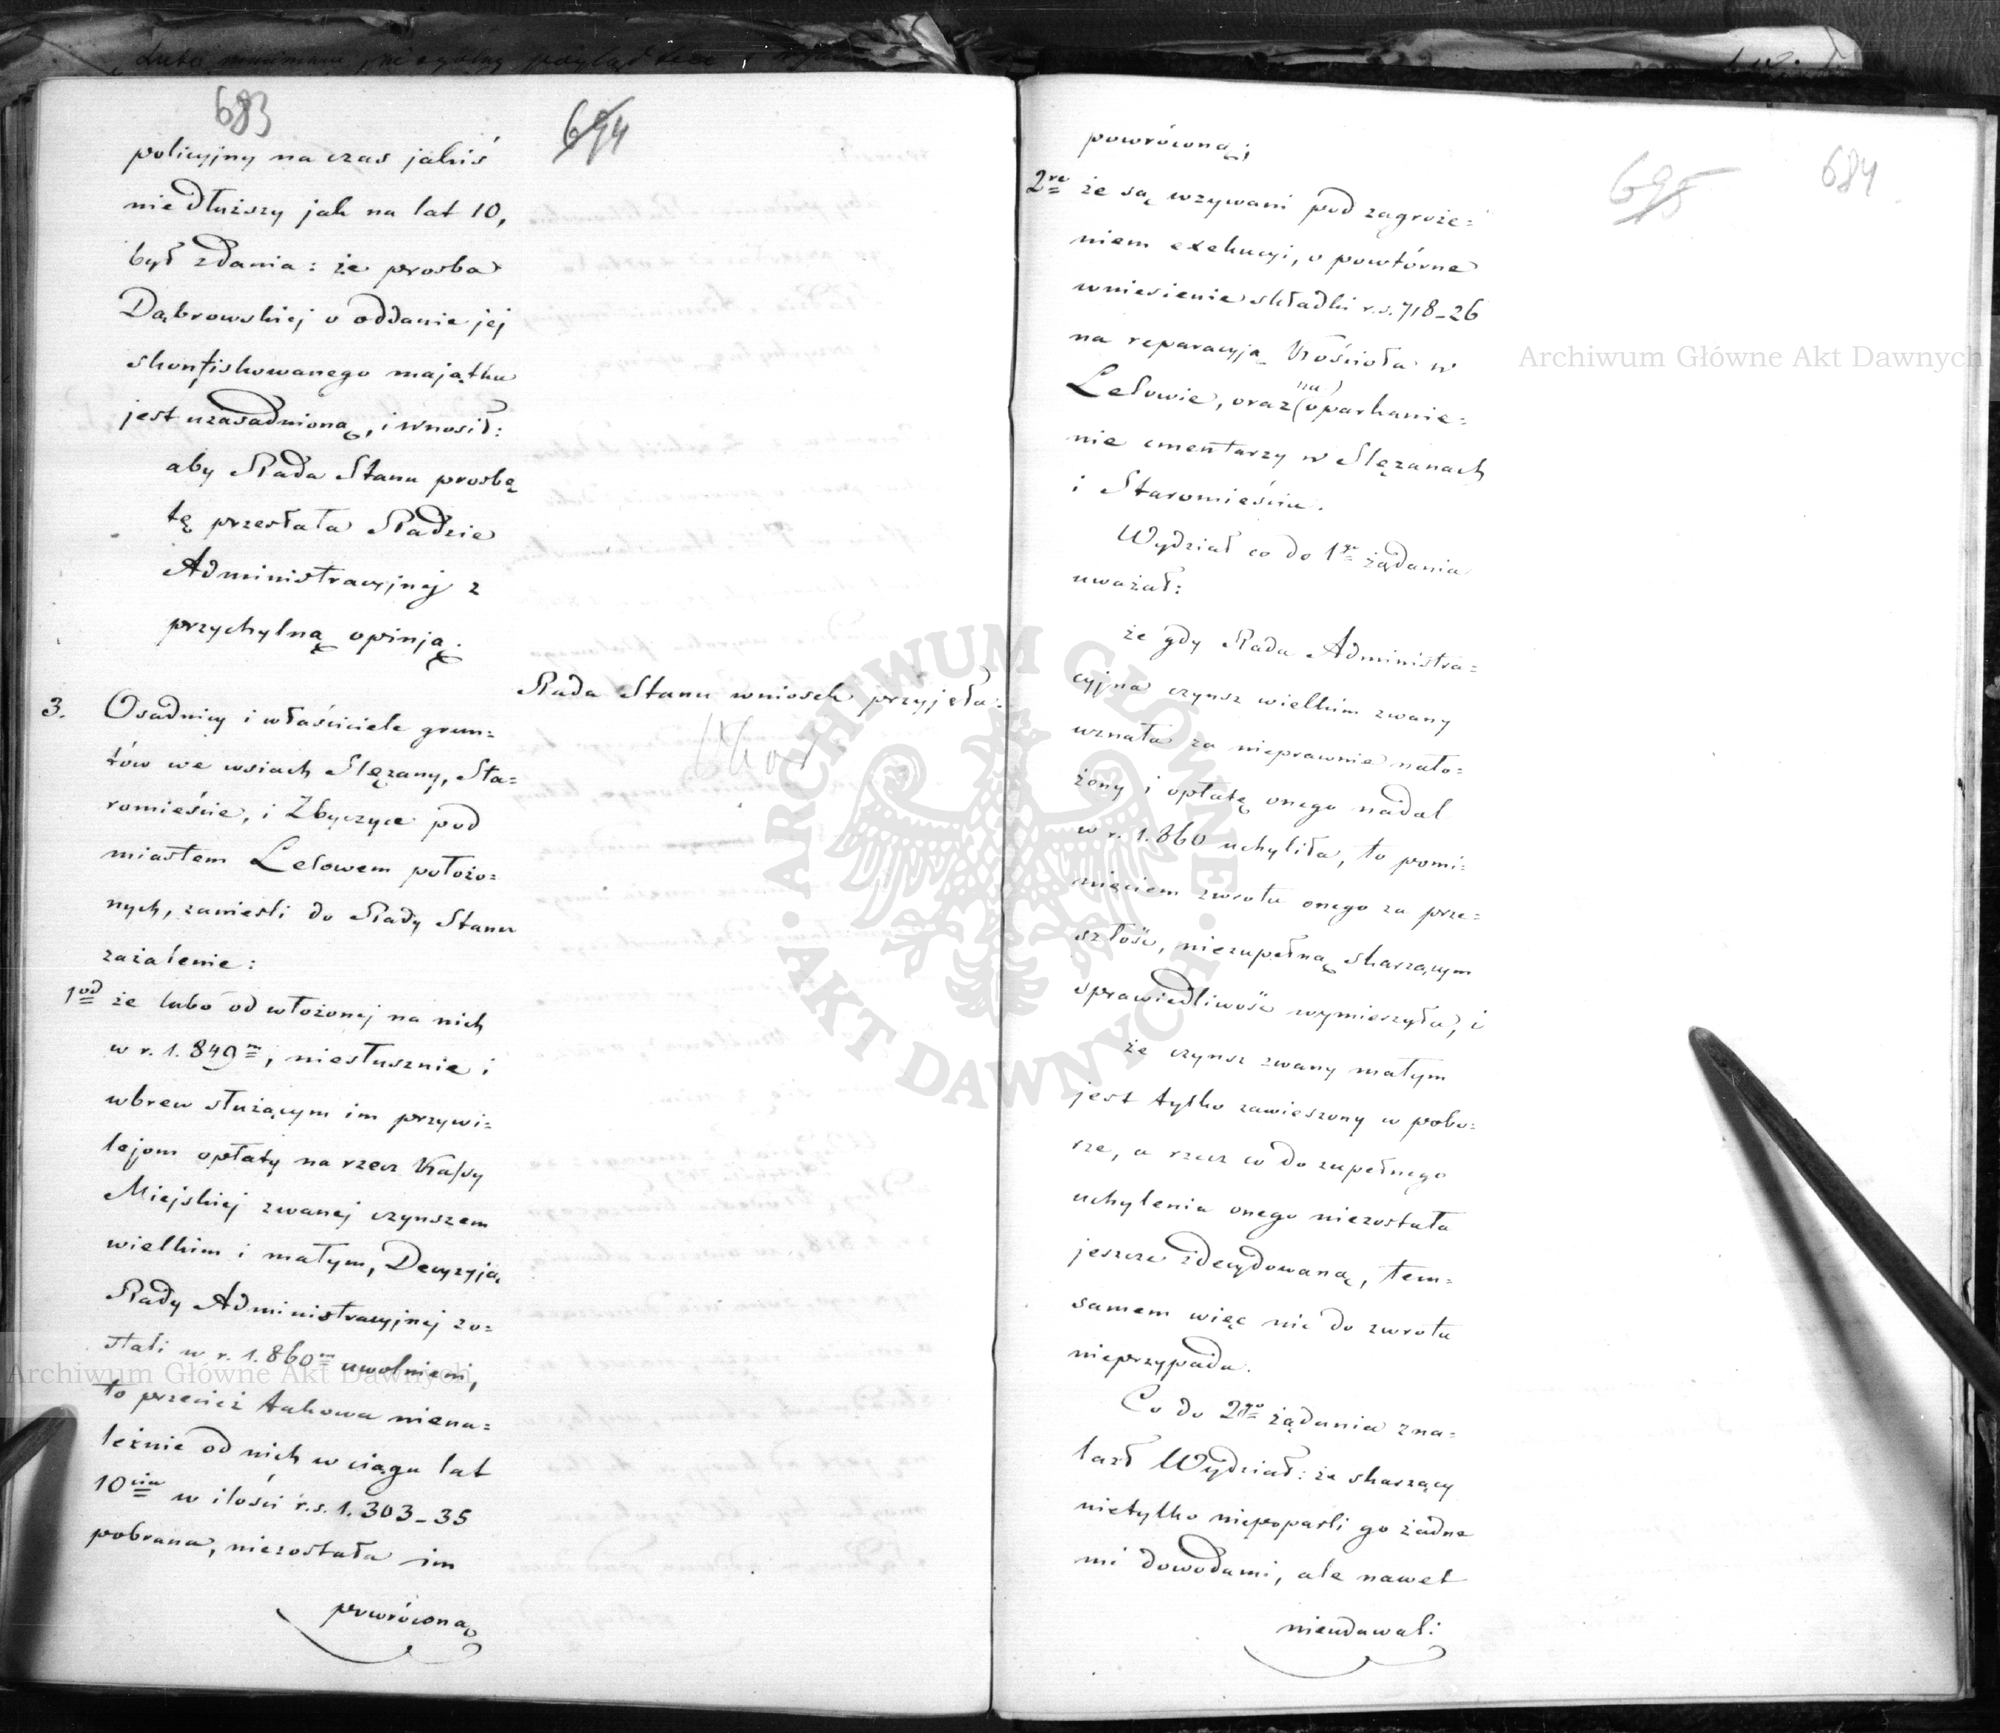 683
694
policyjny na czas jakiś
niedłuższy jak na lat 10,
był zdania: że prosba
Dąbrowskiej o oddanie jej
skonfiskowanego majątku
jest uzasadnioną, i wnosił:
aby Rada Stanu prosbę
tę przesłała Radzie
Administracyjnej z
przychylną opinją.
Rada Stanu wniosek przyjęła.
3. Osadnicy i właściciele grun=
tów we wsiach Slęzany, Sta=
romieście, i Zbyczyce pod
miastem Lelowem położo=
nych, zanieśli do Rady Stanu
zażalenie:
1od że lubo od włożonej na nich
w r. 1.849m, niesłusznie i
wbrew służącym im przywi=
lejom opłaty na rzecz Kassy
Miejskiej zwanej czynszem
wielkim i małym, Decyzyją
Rady Administracyjnej zo=
stali w r. 1.860m uwolnieni,
to przecież takowa niena=
leżnie od nich w ciągu lat
10ciu w ilości r.s. 1.303_35
pobrana, niezostała im
powróconą
684
695
powróconą;
2re że są wzywani pod zagroże=
niem exekucyi, o powtórne
wniesienie składki r.s. 718_26
na reparacyją Kościoła w
Lelowie, oraz (na) oparkanie=
nie cmentarzy w Slęzanach
i Staromieściu.
Wydział co do 1go żądania
uważał:
że gdy Rada Administra=
cyjna czynsz wielkim zwany
uznała za nieprawnie nało=
żony i opłatę onego nadal
w r. 1.860 uchyliła, to pomi=
nięciem zwrotu onego za prze=
szłość, niezupełną skarzącym
sprawiedliwość wymierzyła, i
że czynsz zwany małym
jest tylko zawieszony w pobo=
rze, a rzecz co do zupełnego
uchylenia onego niezostała
jeszcze zdecydowaną, tem=
samem więc nic do zwrotu
nieprzypada.
Co do 2go żądania zna=
lazł Wydział: że skarzący
nietylko niepoparli go żadne
mi dowodami, ale nawet
nieudawali
Archiwum Główne Akt Dawnych
Archiwum Główne Akt Dawnych
ARCHIWUM GŁÓWNE · AKT DAWNYCH ·